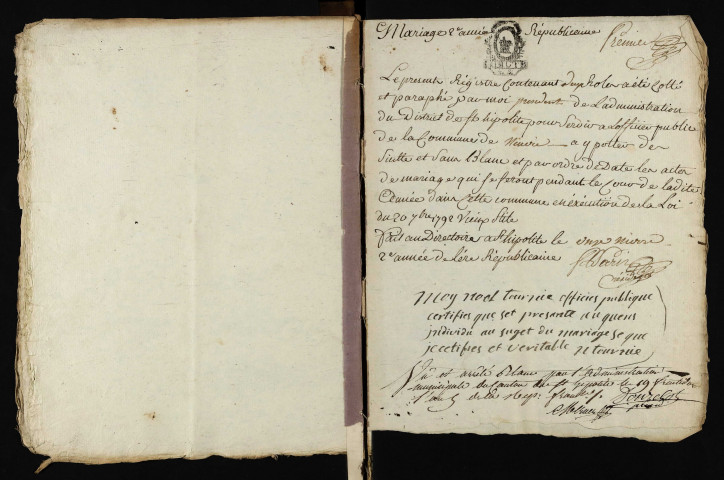 Mariage 2e année Républicaine
Premier
MINUTE
Le present Régistre Contenant a été Cotté
et paraphé par moi president de L'administration
du District de St hipolite pour Servir a L'officier public
de la Commune de a y porter de
Suitte et Sans Blanc et par ordre de Date les actes
de mariage qui se feront pendant le Cours de ladite
année dans Cette commune en éxécution de la Loi
du 20 7bre 1792 Vieux Stile
fait au Directoire a St hipolite le onze nivose
2e année de l'ére Républicaine
moy noel tournie officier publique
certifies que set presante
individu au suget du mariage se que
je certifies et veritable n tournie
Vu et arrêté par l'administration
municipale du canton de St hipolite le 19
l'an 5 de la Rep. franse